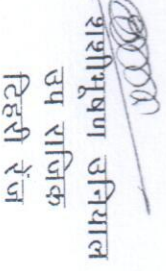 शशीभूषण उनियाल
उप राजिक
टिहरी रेंज